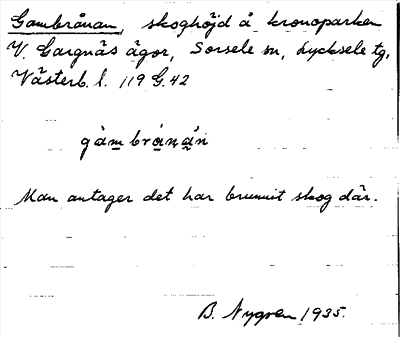 Gambrånan, skoghöjd å kronoparken
V. Gargnäs ägor, Sorsele sn, Lycksele tg,
Västerb. l. 119 G. 42
gàmbrånà̀n
Man antager det har brunnit skog där.
B. Nygren 1935.